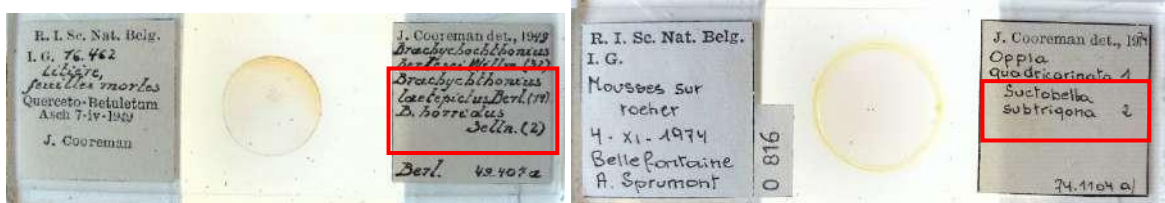 R. I. Sc. Nat. Belg.
I. G. 76.462
Litière,
feuilles mortes
Querceto-Betuletum
Asch 7-iv-1949
J. Cooreman
J. Cooreman det., 1949
Brachychochthonius
berlesei Willm. (31)
Brachychthonius
laetepictus Berl. (19)
B. horridus
Selln. (2)
Berl. 49.407a
R. I. Sc. Nat. Belg.
I. G.
Mousses sur
rocher
4 - XI - 1974
Bellefontaine
A. Sprumont
O 816
J. Cooreman det., 1974
Oppia
quadricarinata 1
Suctobella
subtrigona 2
74.1104 a/